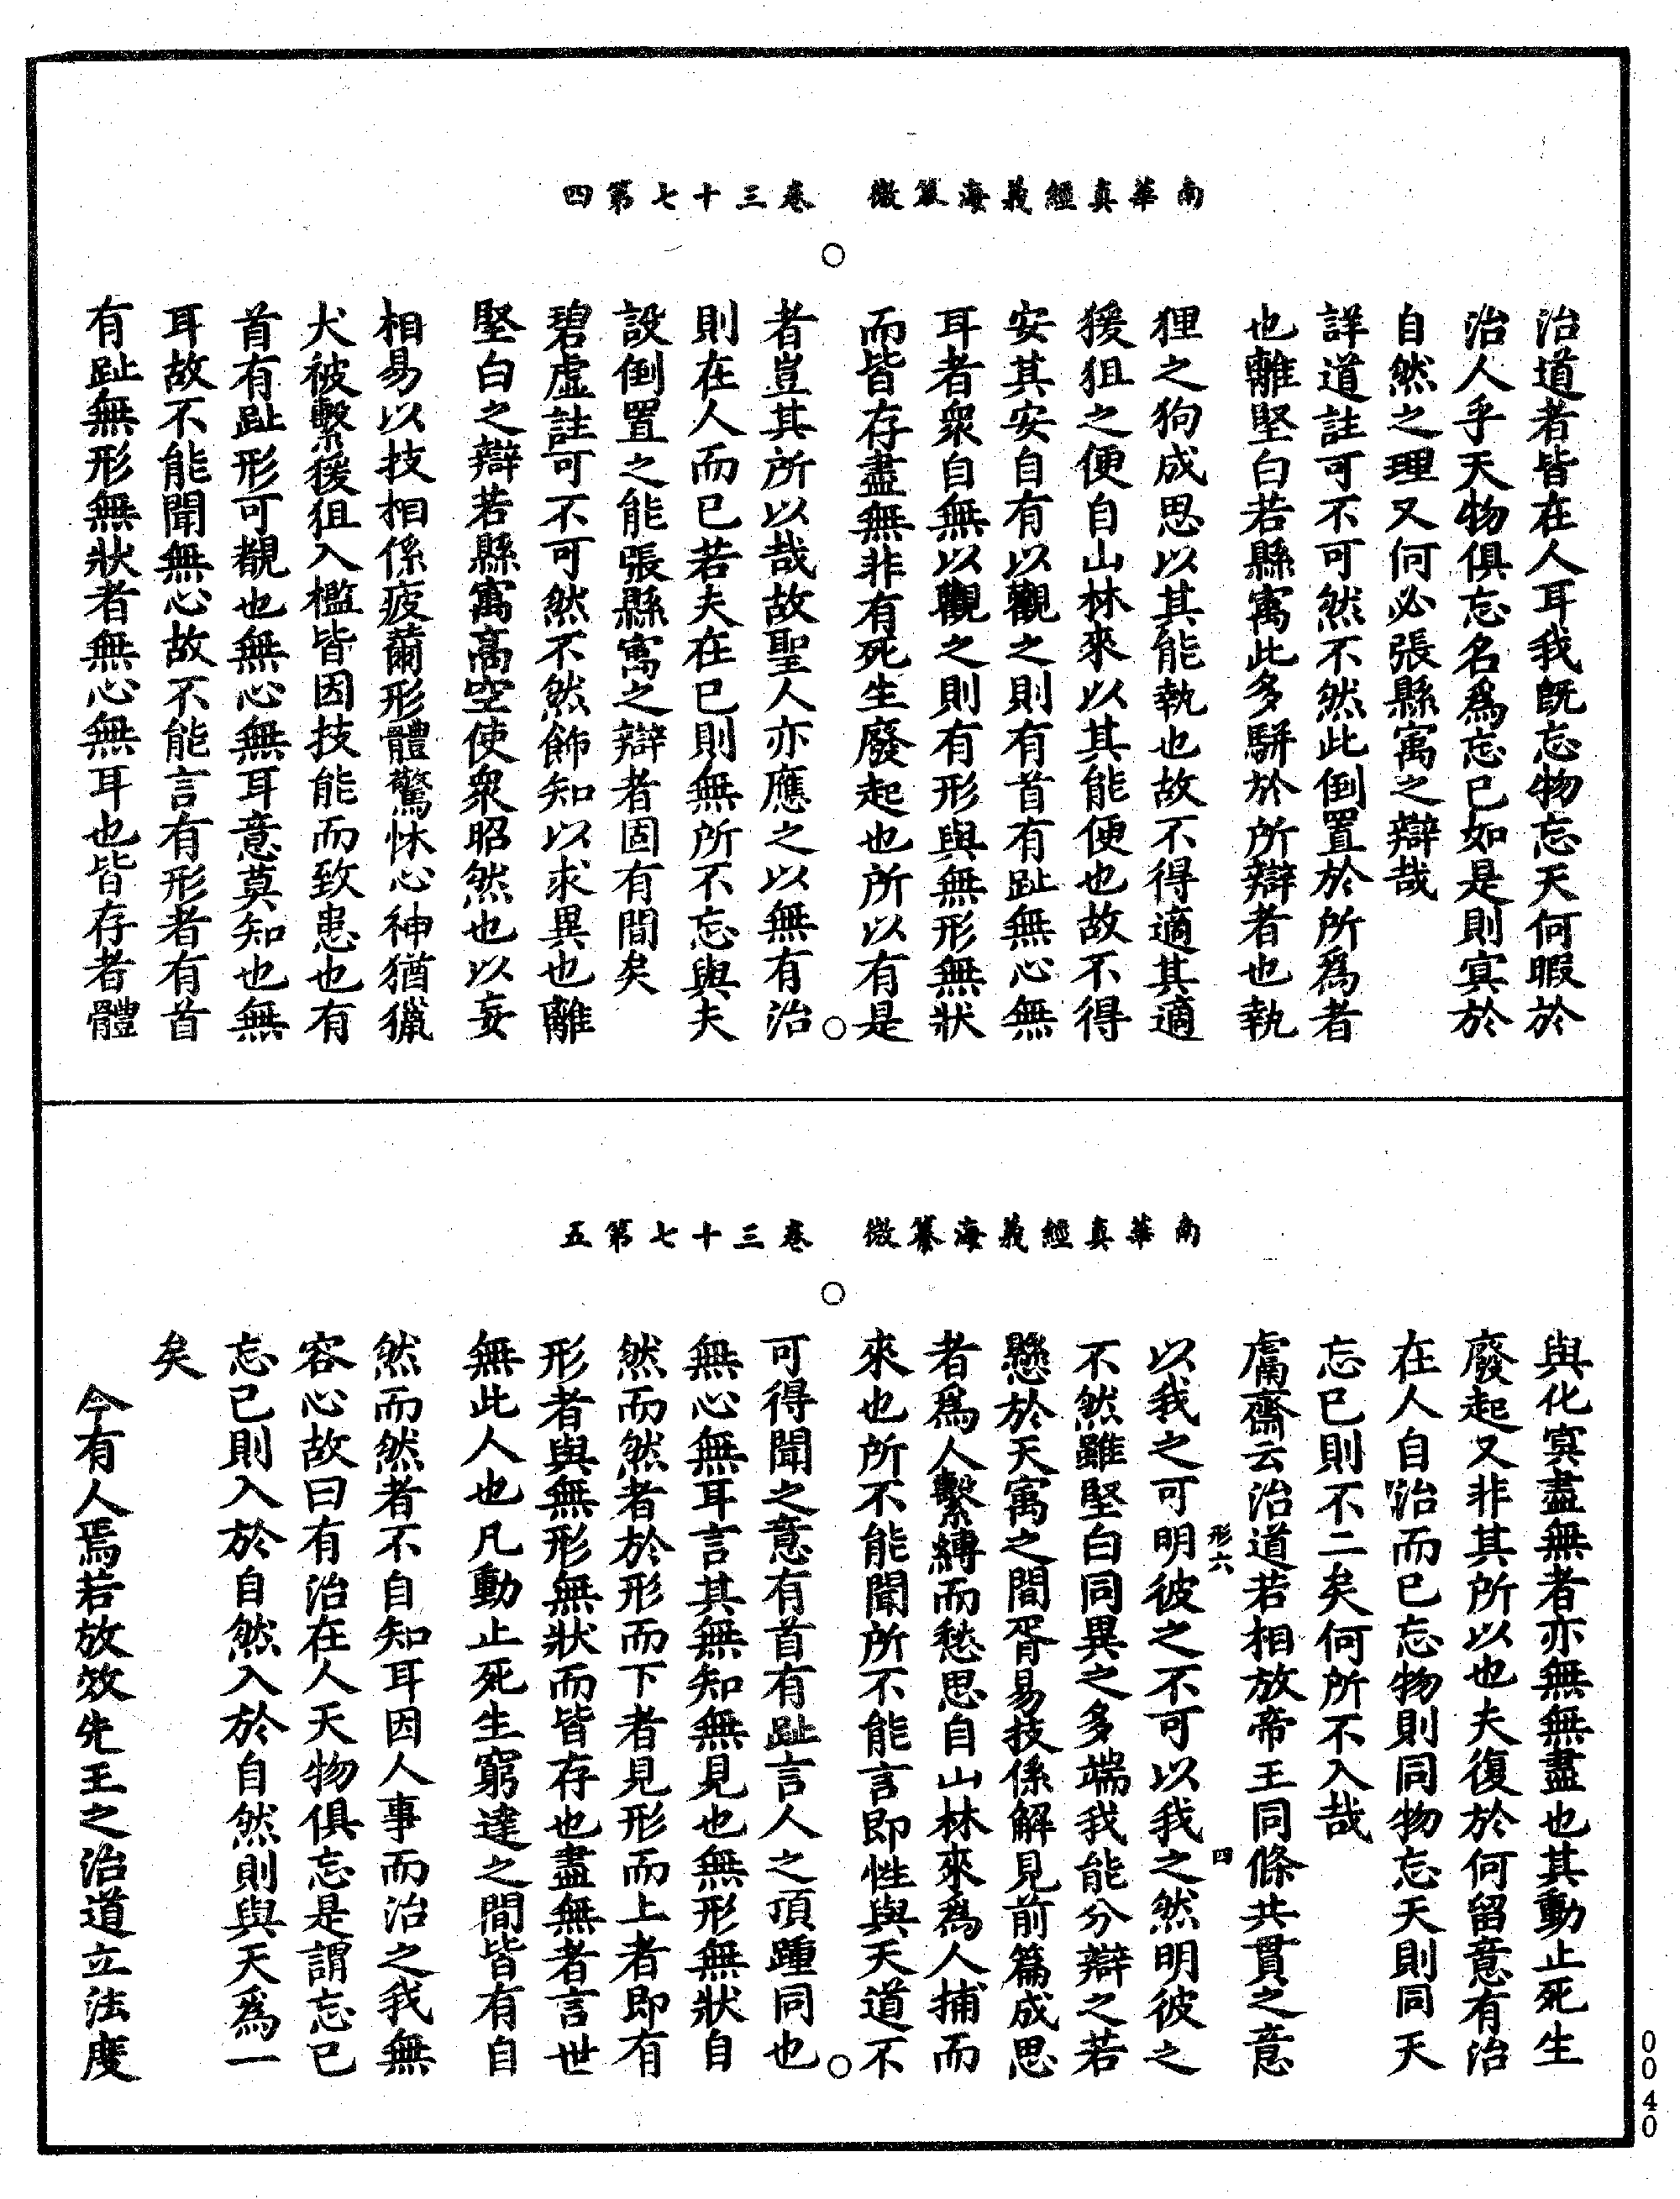 南華真經義海纂微　卷三十七第四
治道者皆在人耳我旣忘物忘天何暇於
治人乎天物俱忘名爲忘已如是則㝠於
自然之理又何必張縣㝢之辯哉
詳道註可不可然不然此倒置於所爲者
也離堅白若縣㝢此多駢於所辯者也執
狸之狗成思以其能執也故不得適其適
猨狙之便自山林來以其能便也故不得
安其安自有以觀之則有首有趾無心無
耳者衆自無以觀之則有形與無形無狀
而皆存盡無非有死生廢起也所以有是
者豈其所以哉故聖人亦應之以無有治
則在人而已若夫在已則無所不忘與夫
設倒置之能張縣㝢之辯者固有間矣
碧虛註可不可然不然飾知以求異也離
堅白之辯若縣㝢高空使衆昭然也以妄
相易以技相係疲薾形體驚怵心神猶獵
犬被繫猨狙入檻皆因技能而致患也有
首有趾形可覩也無心無耳意莫知也無
耳故不能聞無心故不能言有形者有首
有趾無形無狀者無心無耳也皆存者體
南華真經義海纂微　卷三十七第五
與化㝠盡無者亦無無盡也其動止死生
廢起又非其所以也夫復於何留意有治
在人自治而已忘物則同物忘天則同天
忘已則不二矣何所不入哉
鬳齋云治道若相放帝王同條共貫之意
形六　四
以我之可明彼之不可以我之然明彼之
不然雖堅白同異之多端我能分辯之若
懸於天㝢之間胥易技係解見前篇成思
者爲人繫縛而愁思自山林來爲人捕而
來也所不能聞所不能言即性與天道不
可得聞之意有首有趾言人之頂踵同也
無心無耳言其無知無見也無形無狀自
然而然者於形而下者見形而上者即有
形者與無形無狀而皆存也盡無者言世
無此人也凡動止死生窮達之間皆有自
然而然者不自知耳因人事而治之我無
容心故曰有治在人天物俱忘是謂忘已
忘已則入於自然入於自然則與天爲一
矣
今有人焉若放效先王之治道立法度
0040